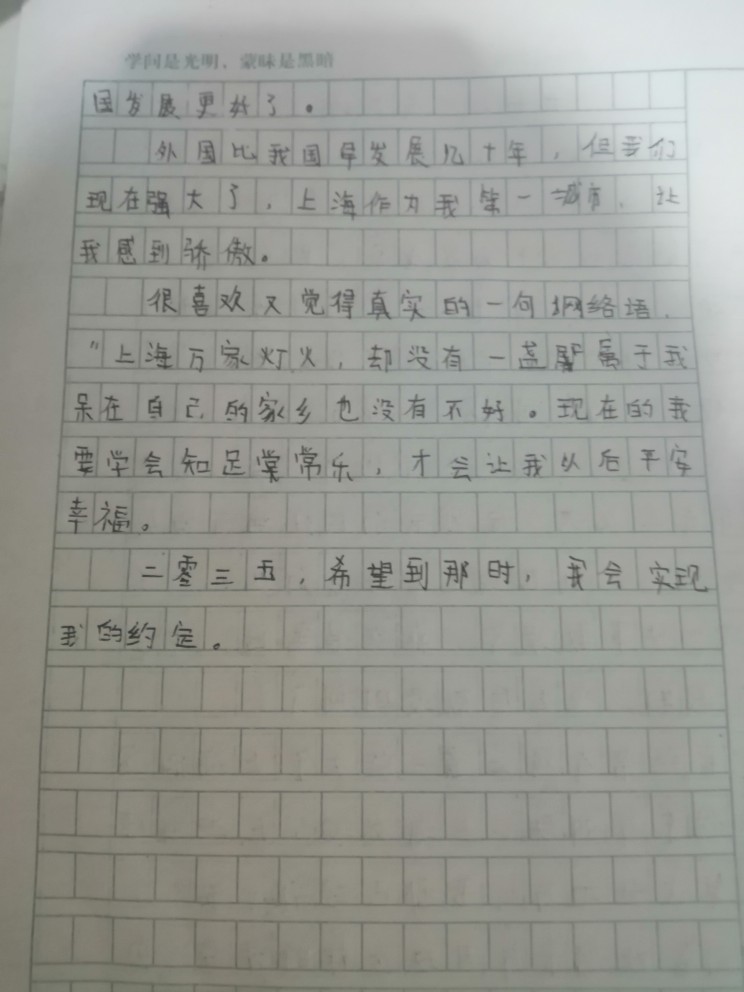 学问是光明，蒙昧是黑暗
国发展更好了。
外国比我国早发展几十年，但我们
现在强大了，上海作为我第一城市，让
我感到骄傲。
很喜欢又觉得真实的一句网络语，
“上海万家灯火，却没有一盏属于我
呆在自己的家乡也没有不好。现在的我
要学会知足常乐，才会让我以后平安
幸福。
二零三五，希望到那时，我会实现
我的约定。